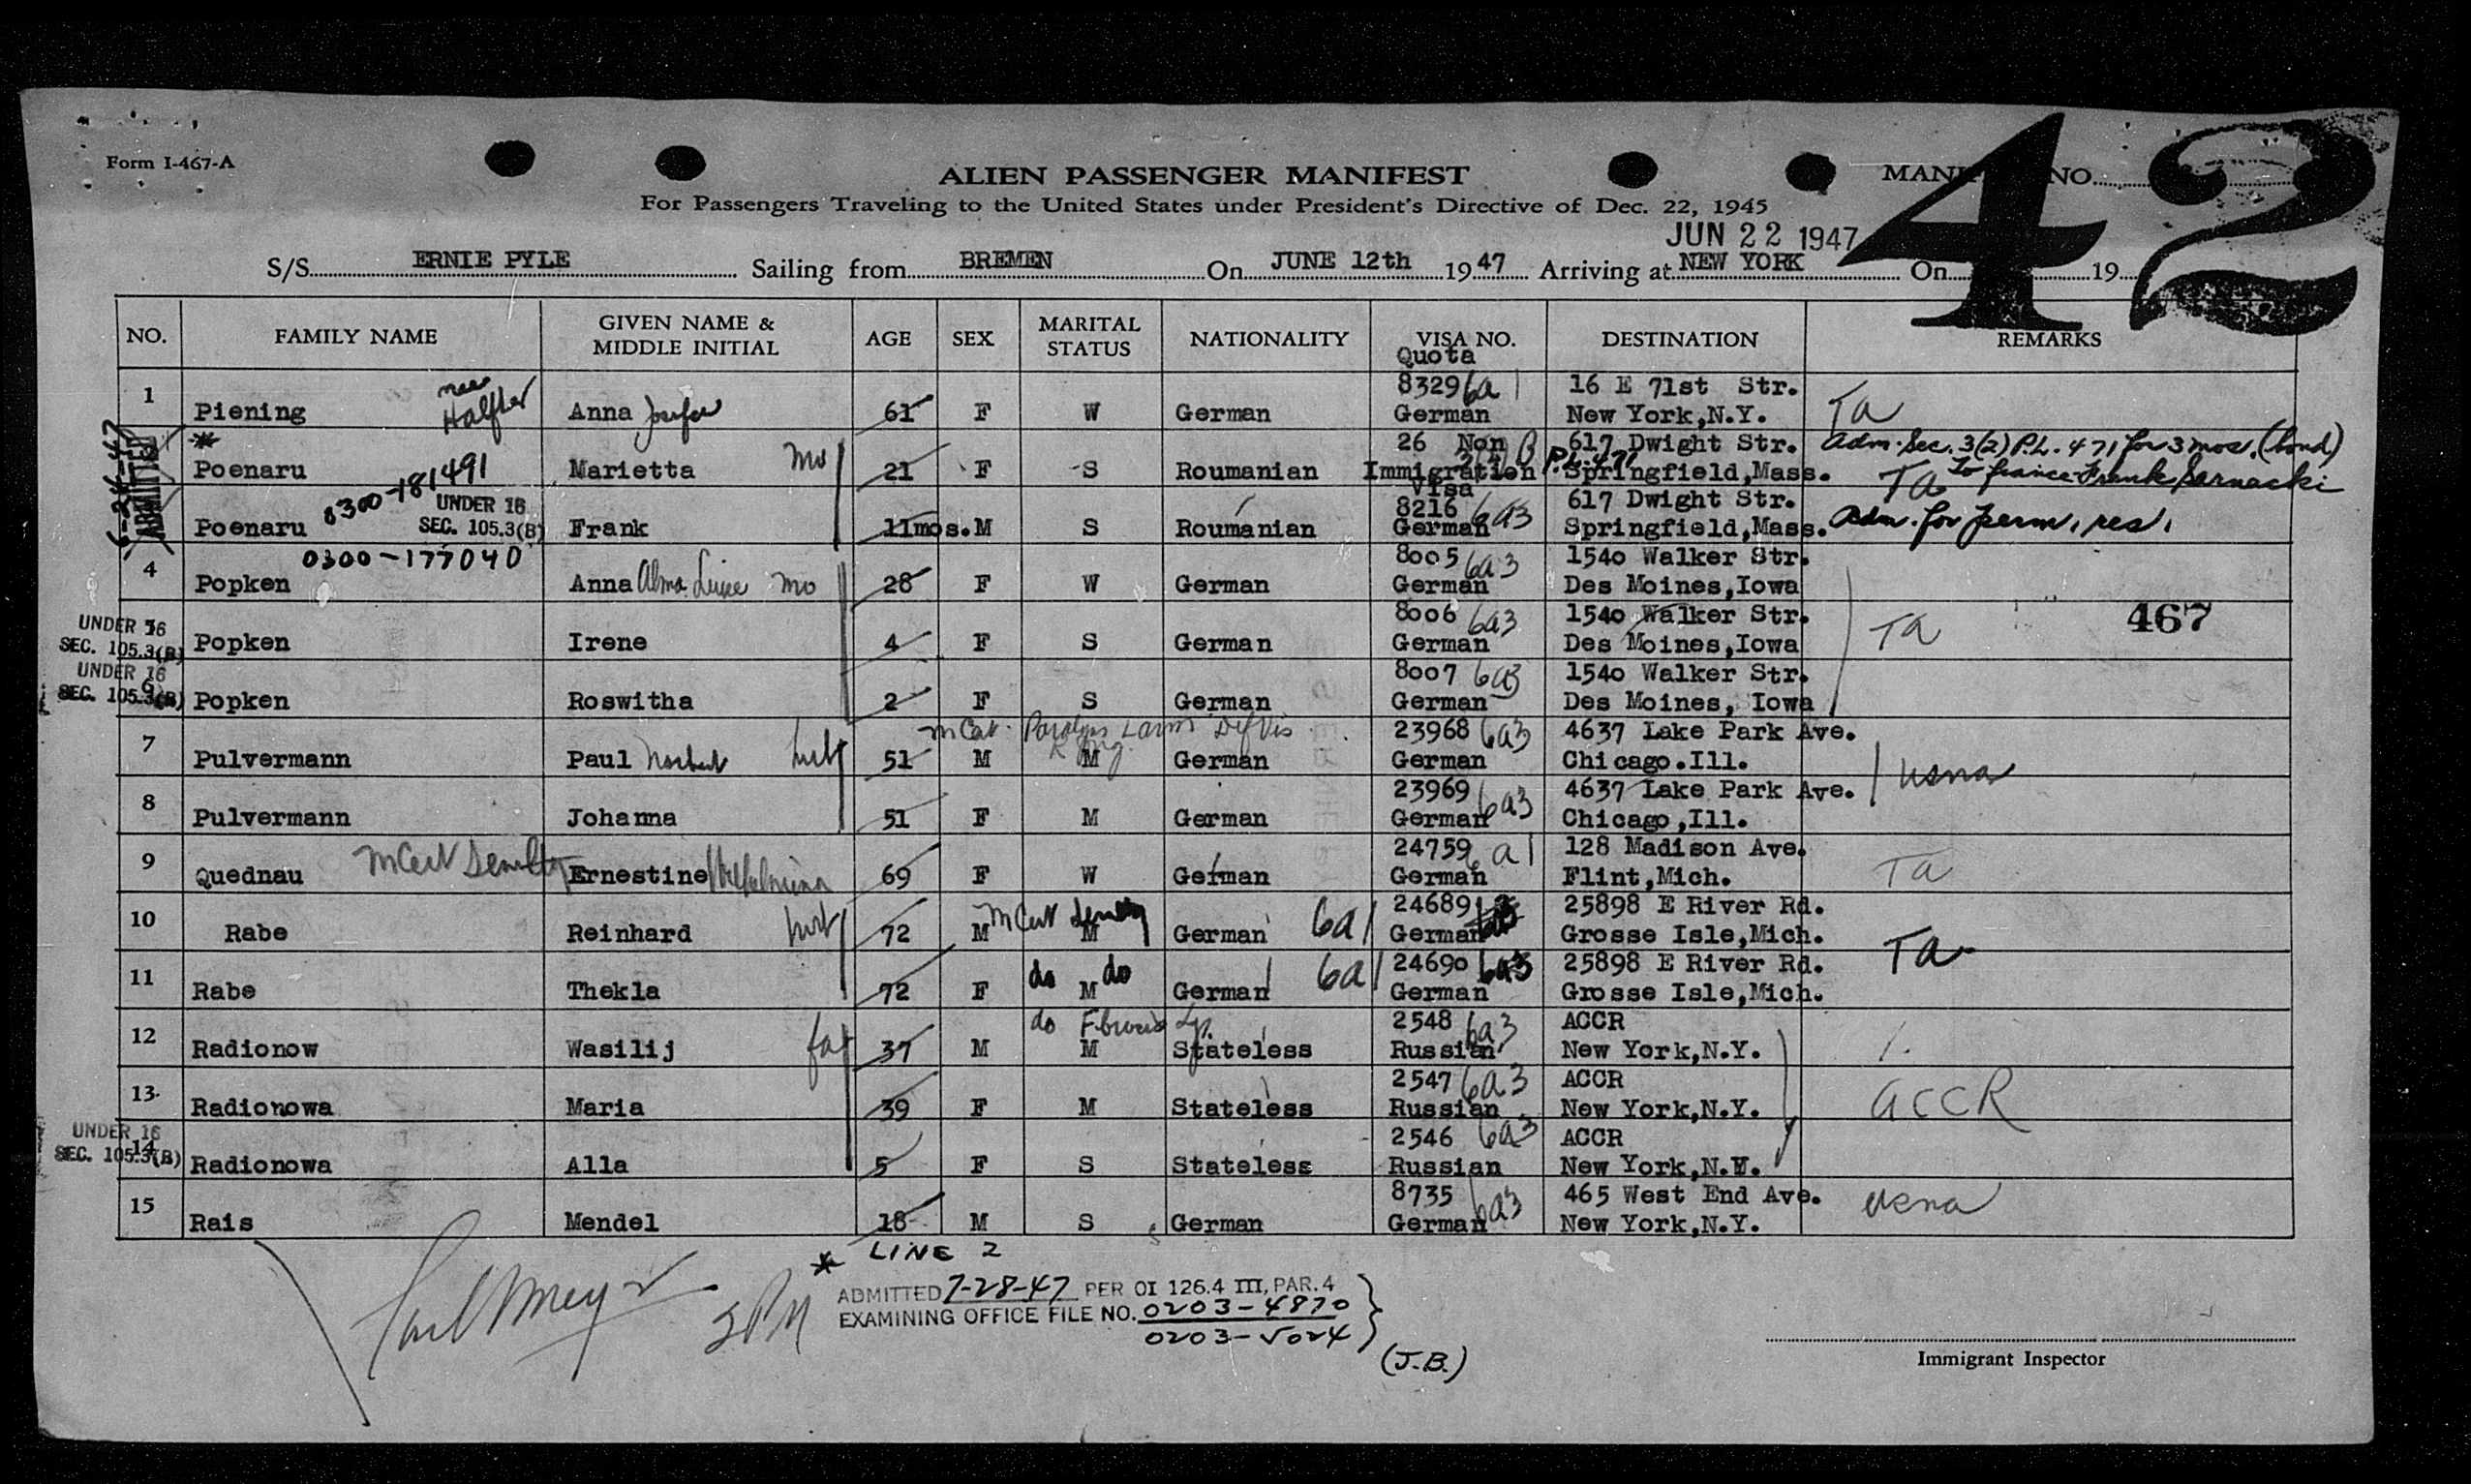 Form I-467-A
ALIEN PASSENGER MANIFEST
MANI NO.
42
For Passengers Traveling to the United States under President's Directive of Dec. 22, 1945
JUN 22 1947
S/S ERNIE PYLE Sailing from BREMEN On JUNE 12th 1947 Arriving at NEW YORK On 19
NO. FAMILY NAME GIVEN NAME & MIDDLE INITIAL AGE SEX MARITAL STATUS NATIONALITY VISA NO. DESTINATION REMARKS
Quota
1 Piening nee Halfter Anna Josefa 61 F W German 8329 6a1 German 16 E 71st Str. New York,N.Y. Ta
6-24-47 ADMITTED
* Poenaru 0300-181491 Marietta mo 21 F S Roumanian 26 Non Immigration Visa P.L. 471 617 Dwight Str. Springfield,Mass. Adm. Sec. 3(2) P.L. 471 for 3 mos. (bond) Ta To fiance Frank Sarnacki
Poenaru UNDER 16 SEC. 105.3(B) Frank 11mos. M S Roumanian 8216 6a3 German 617 Dwight Str. Springfield,Mass. Adm. for perm. res.
4 Popken 0300-177040 Anna Alma Luise mo 28 F W German 8005 6a3 German 1540 Walker Str. Des Moines,Iowa
UNDER 16 SEC. 105.3(B) Popken Irene 4 F S German 8006 6a3 German 1540 Walker Str. Des Moines,Iowa Ta 467
UNDER 16 SEC. 105.3(B) Popken Roswitha 2 F S German 8007 6a3 German 1540 Walker Str. Des Moines, Iowa
7 Pulvermann Paul Norbert 51 M M German 23968 6a3 German 4637 Lake Park Ave. Chicago.Ill. usna
8 Pulvermann Johanna 51 F M German 23969 6a3 German 4637 Lake Park Ave. Chicago,Ill.
9 Quednau M Cert Senility Ernestine Wilhelmina 69 F W German 24759 6a1 German 128 Madison Ave. Flint,Mich. Ta
10 Rabe Reinhard 72 M M Cert Senility M German 6a1 24689 German 25898 E River Rd. Grosse Isle,Mich. Ta
11 Rabe Thekla 72 F do M do German 6a1 24690 6a3 German 25898 E River Rd. Grosse Isle,Mich.
12 Radionow Wasilij fa 37 M do M Stateless 2548 6a3 Russian ACCR New York,N.Y.
13 Radionowa Maria 39 F M Stateless 2547 6a3 Russian ACCR New York,N.Y. ACCR
UNDER 16 SEC. 105.3(B) 14 Radionowa Alla 5 F S Stateless 2546 6a3 Russian ACCR New York,N.Y.
15 Rais Mendel 18 M S German 8735 6a3 German 465 West End Ave. New York,N.Y. usna
* LINE 2
ADMITTED 7-28-47 PER OI 126.4 III, PAR. 4
EXAMINING OFFICE FILE NO. 0203-4870
0203-5024
(J.B.)
Immigrant Inspector